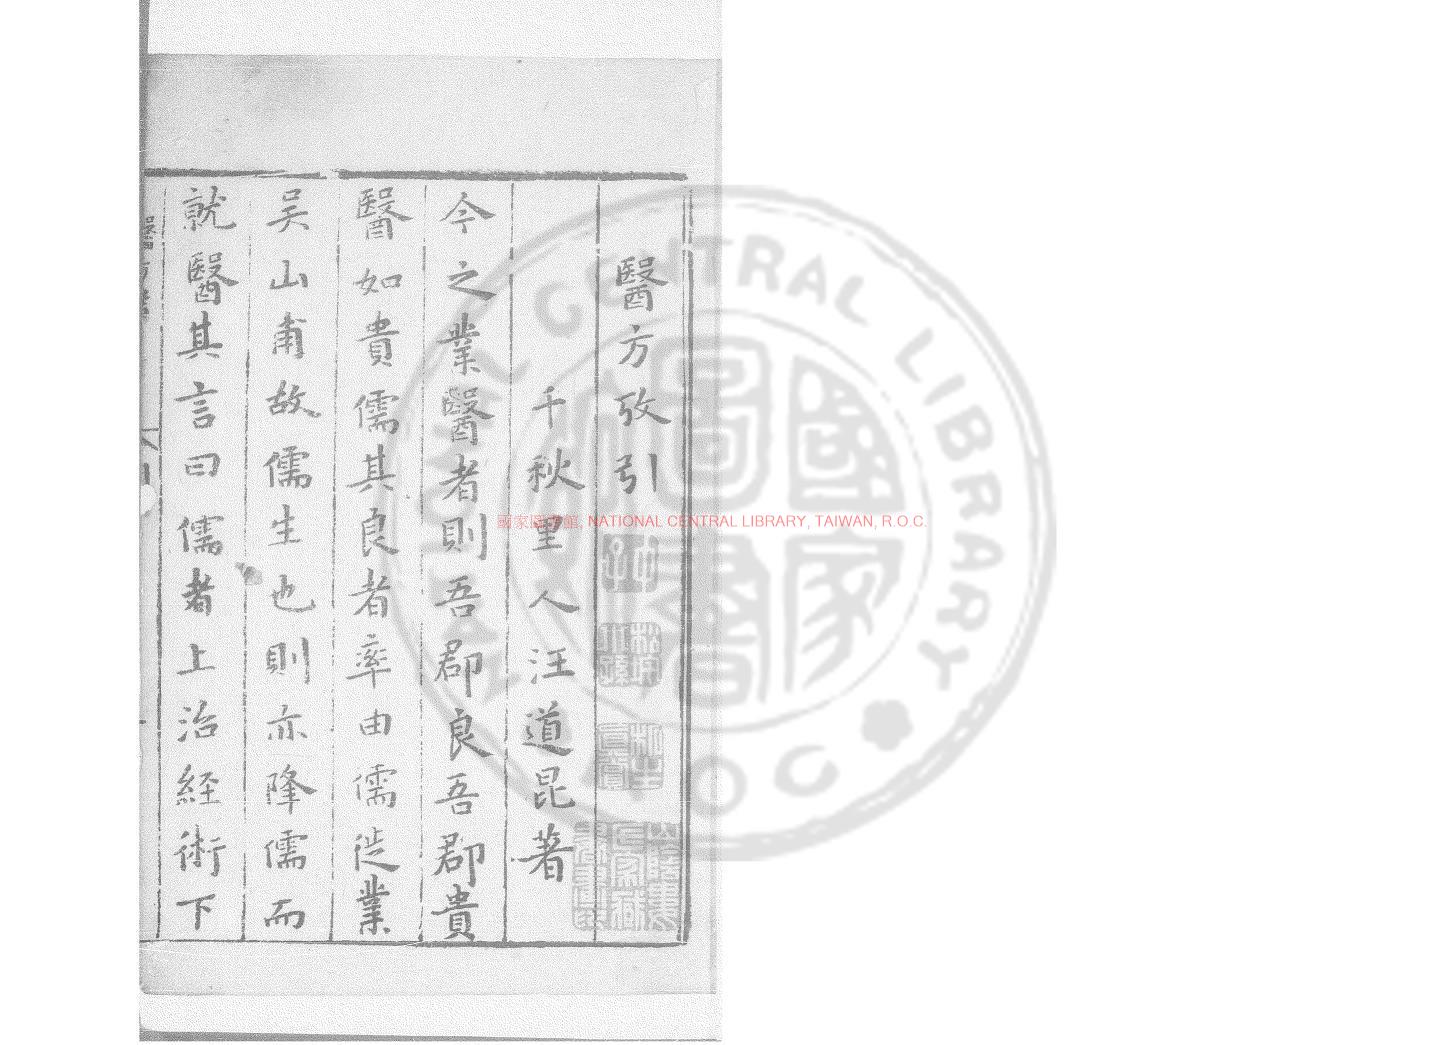 醫方攷引
千秋里人汪道昆著
今之業醫者則吾郡良吾郡貴
醫如貴儒其良者率由儒徙業
吳山甫故儒生也則亦隆儒而
就醫其言曰儒者上治経術下
國家圖書館, NATIONAL CENTRAL LIBRARY, TAIWAN, R.O.C.